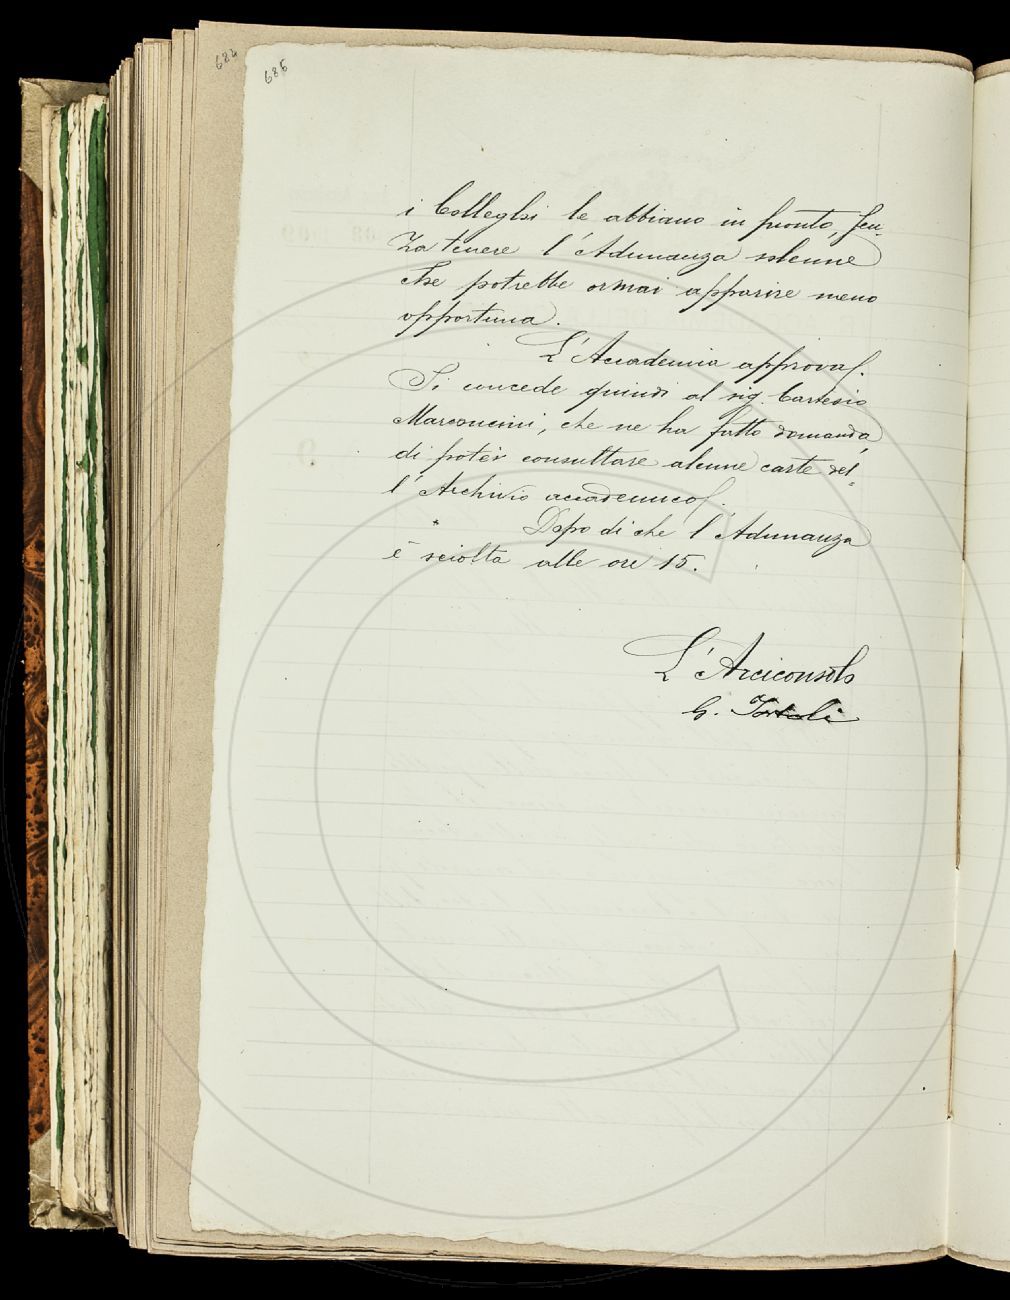 684
686
i Colleghi le abbiano in pronto, sen-
za tenere l'Adunanza solenne
che potrebbe ormai apparire meno
opportuna.
L'Accademia approva.
Si concede quindi al sig. Cartesio
Marconcini, che ne ha fatto domanda,
di poter consultare alcune carte del-
l'Archivio accademico.
Dopo di che l'Adunanza
è sciolta alle ore 15.
L'Arciconsolo
G. Tortoli